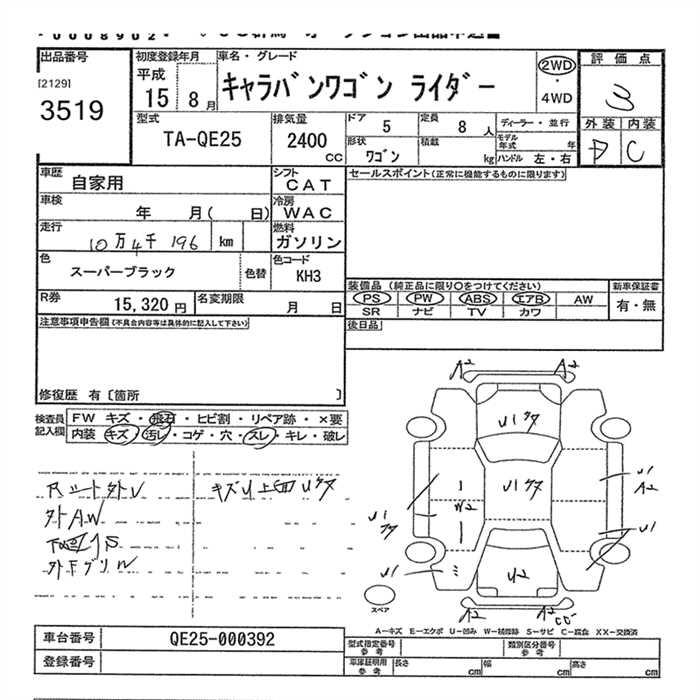 出品番号
[2129]
3519
初度登録年月
平成
15年 8月
車名・グレード
キャラバンワゴン ライダー
2WD
4WD
評価点
3
外装 内装
D C
型式
TA-QE25
排気量
2400 CC
ドア
5
定員
8人
ディーラー・並行
形状
ワゴン
積載
kg
モデル年式 年
ハンドル 左・右
車歴
自家用
シフト
CAT
セールスポイント(正常に機能するものに限ります)
車検
年 月( 日)
冷房
WAC
走行
10万4千196 km
燃料
ガソリン
色
スーパーブラック
色替
色コード
KH3
装備品(純正品に限り○をつけてください)
新車保証書
PS PW ABS エアB AW
有・無
SR ナビ TV カワ
R券
15,320円
名変期限
月 日
後日品
注意事項申告欄(不具合内容等は具体的に記入して下さい)
修復歴 有〔箇所 〕
検査員記入欄
FW キズ・飛石・ヒビ割・リペア跡・×要
内装 キズ・汚レ・コゲ・穴・スレ・キレ・破レ
外AW
A2 A2
U1
U1
U1
A2
W2
U1
U1
U1
U2
A2 A2
スペア
A-キズ E-エクボ U-凹み W-補修跡 S-サビ C-腐食 XX-交換済
車台番号
QE25-000392
登録番号
型式指定番号 参考
類別区分番号 参考
車庫証明用 参考
長さ cm
幅 cm
高さ cm